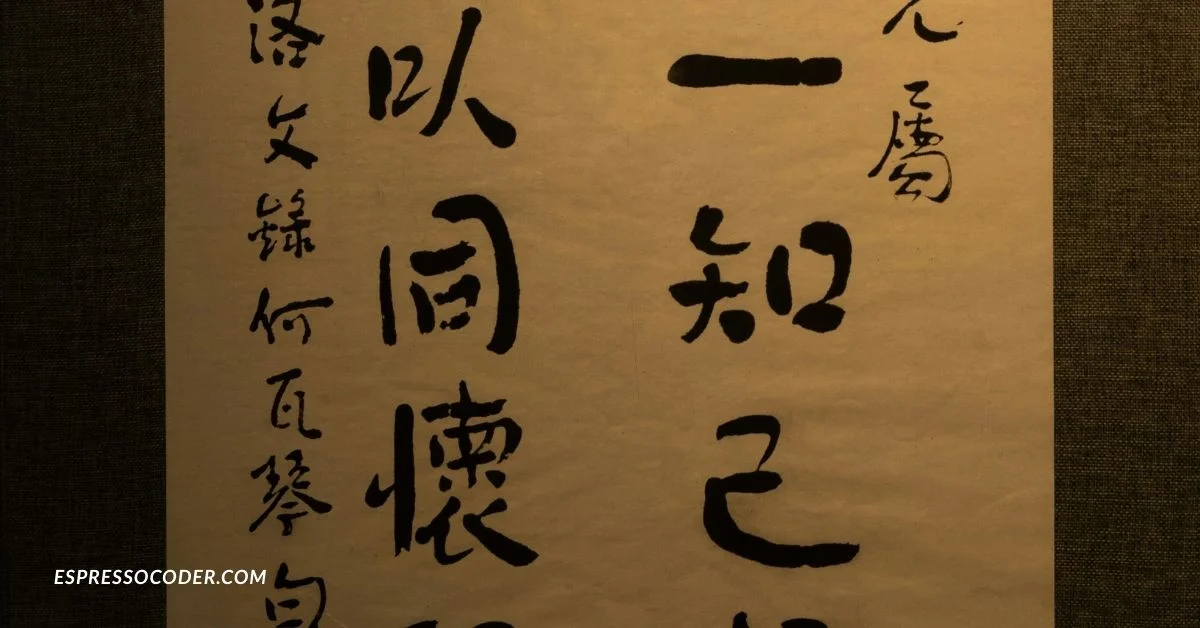 屬
一知己
以同懷
洛文錄何瓦琴句
ESPRESSOCODER.COM